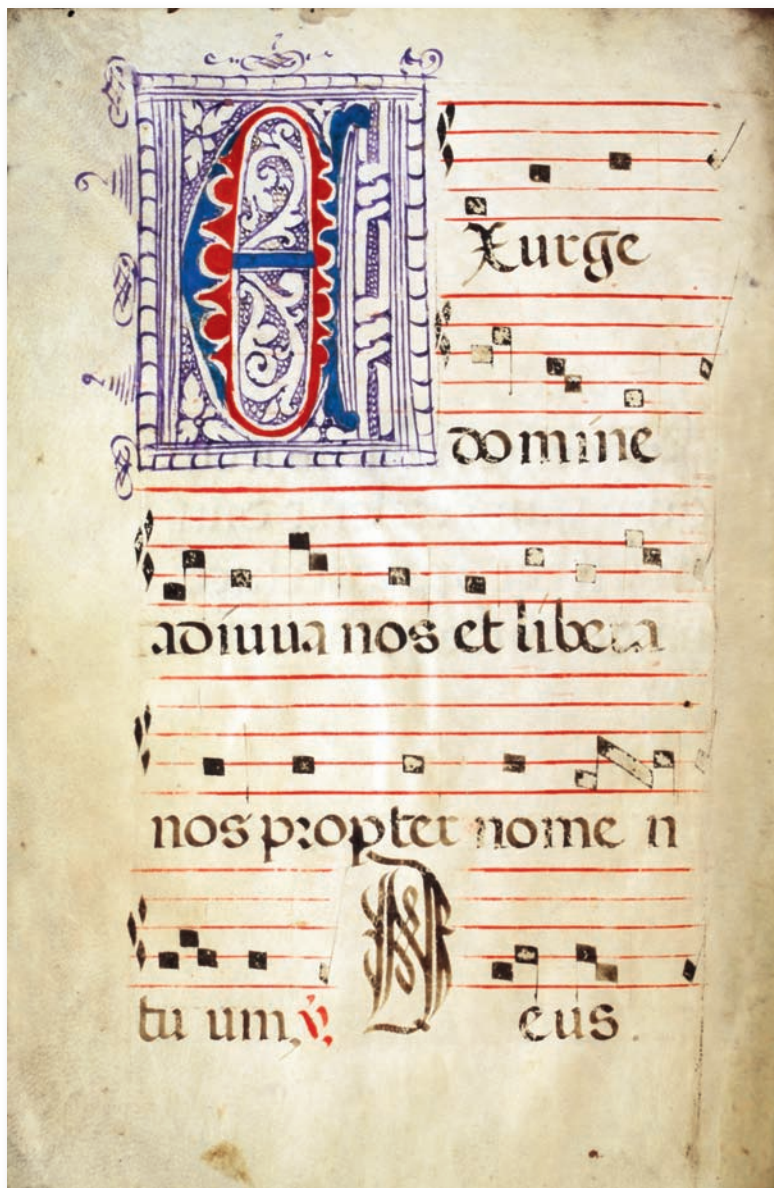 EXurge
domine
adiuua nos et libera
nos propter nomen
tuum, ℣, Deus